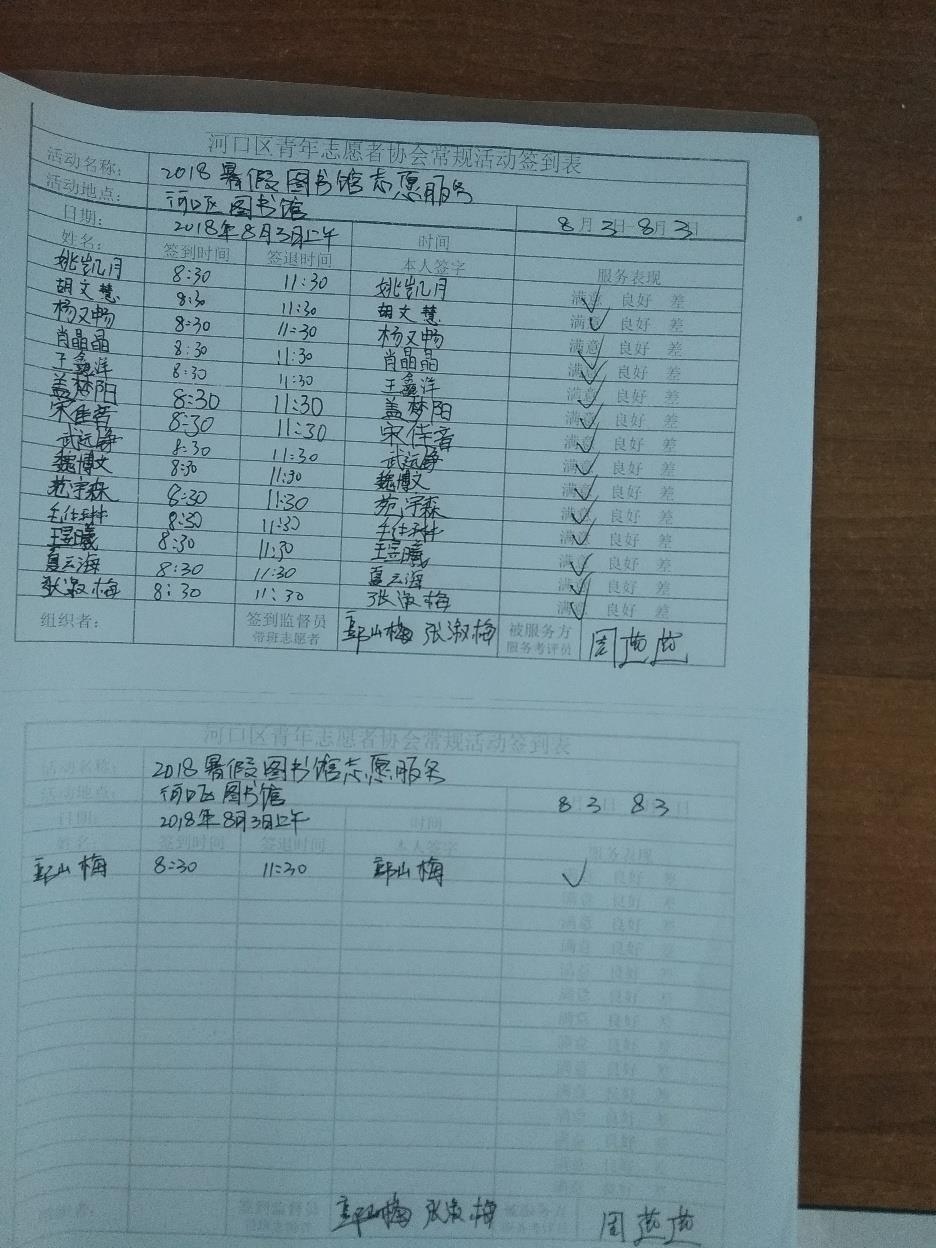 河口区青年志愿者协会常规活动签到表
活动名称: 2018暑假图书馆志愿服务
活动地点: 河口区图书馆
日期: 2018年8月3日上午 时间 8月3日 8月3日
姓名: 签到时间 签退时间 本人签字 服务表现
姚凯月 8:30 11:30 姚凯月 满意 良好 差
胡文慧 8:30 11:30 胡文慧 满意 良好 差
杨又畅 8:30 11:30 杨又畅 满意 良好 差
肖晶晶 8:30 11:30 肖晶晶 满意 良好 差
王鑫洋 8:30 11:30 王鑫洋 满意 良好 差
盖梦阳 8:30 11:30 盖梦阳 满意 良好 差
宋佳音 8:30 11:30 宋佳音 满意 良好 差
武远铮 8:30 11:30 武远铮 满意 良好 差
魏博文 8:30 11:30 魏博文 满意 良好 差
苑宇森 8:30 11:30 苑宇森 满意 良好 差
8:30 11:30 满意 良好 差
王昱曦 8:30 11:30 王昱曦 满意 良好 差
夏云海 8:30 11:30 夏云海 满意 良好 差
张淑梅 8:30 11:30 张淑梅 满意 良好 差
组织者: 签到监督员 带班志愿者 郭山梅 张淑梅 被服务方 服务考评员 周燕燕
河口区青年志愿者协会常规活动签到表
活动名称: 2018暑假图书馆志愿服务
活动地点: 河口区图书馆
日期: 2018年8月3日上午 时间 8 3日 8 3日
姓名: 签到时间 签退时间 本人签字 服务表现
郭山梅 8:30 11:30 郭山梅 满意 良好 差
满意 良好 差
满意 良好 差
满意 良好 差
满意 良好 差
满意 良好 差
满意 良好 差
满意 良好 差
满意 良好 差
满意 良好 差
满意 良好 差
满意 良好 差
满意 良好 差
满意 良好 差
组织者: 签到监督员 带班志愿者 郭山梅 张淑梅 被服务方 服务考评员 周燕燕